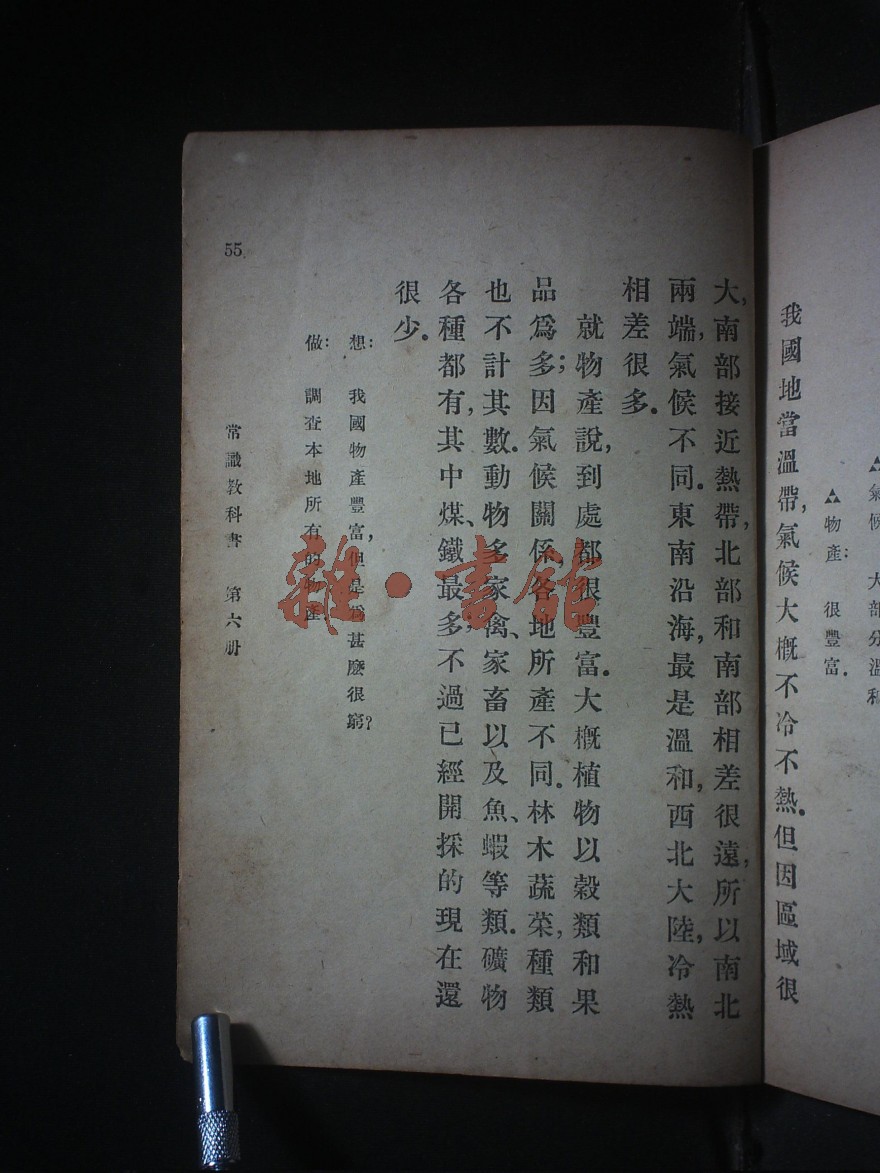 △氣候 大部分溫和
△物產: 很豐富.
我國地當溫帶,氣候大概不冷不熱.但因區域很
大,南部接近熱帶,北部和南部相差很遠,所以南北
兩端,氣候不同.東南沿海,最是溫和,西北大陸,冷熱
相差很多.
就物產說,到處都很豐富.大概植物以穀類和果
品爲多;因氣候關係,各地所產不同.林木蔬菜,種類
也不計其數.動物多家禽、家畜以及魚、蝦等類.礦物
各種都有,其中煤、鐵最多;不過已經開採的現在還
很少.
想: 我國物產豐富,但是爲甚麽很窮?
做: 調查本地所有的物產
常識敎科書 第六册
55
雜·書館